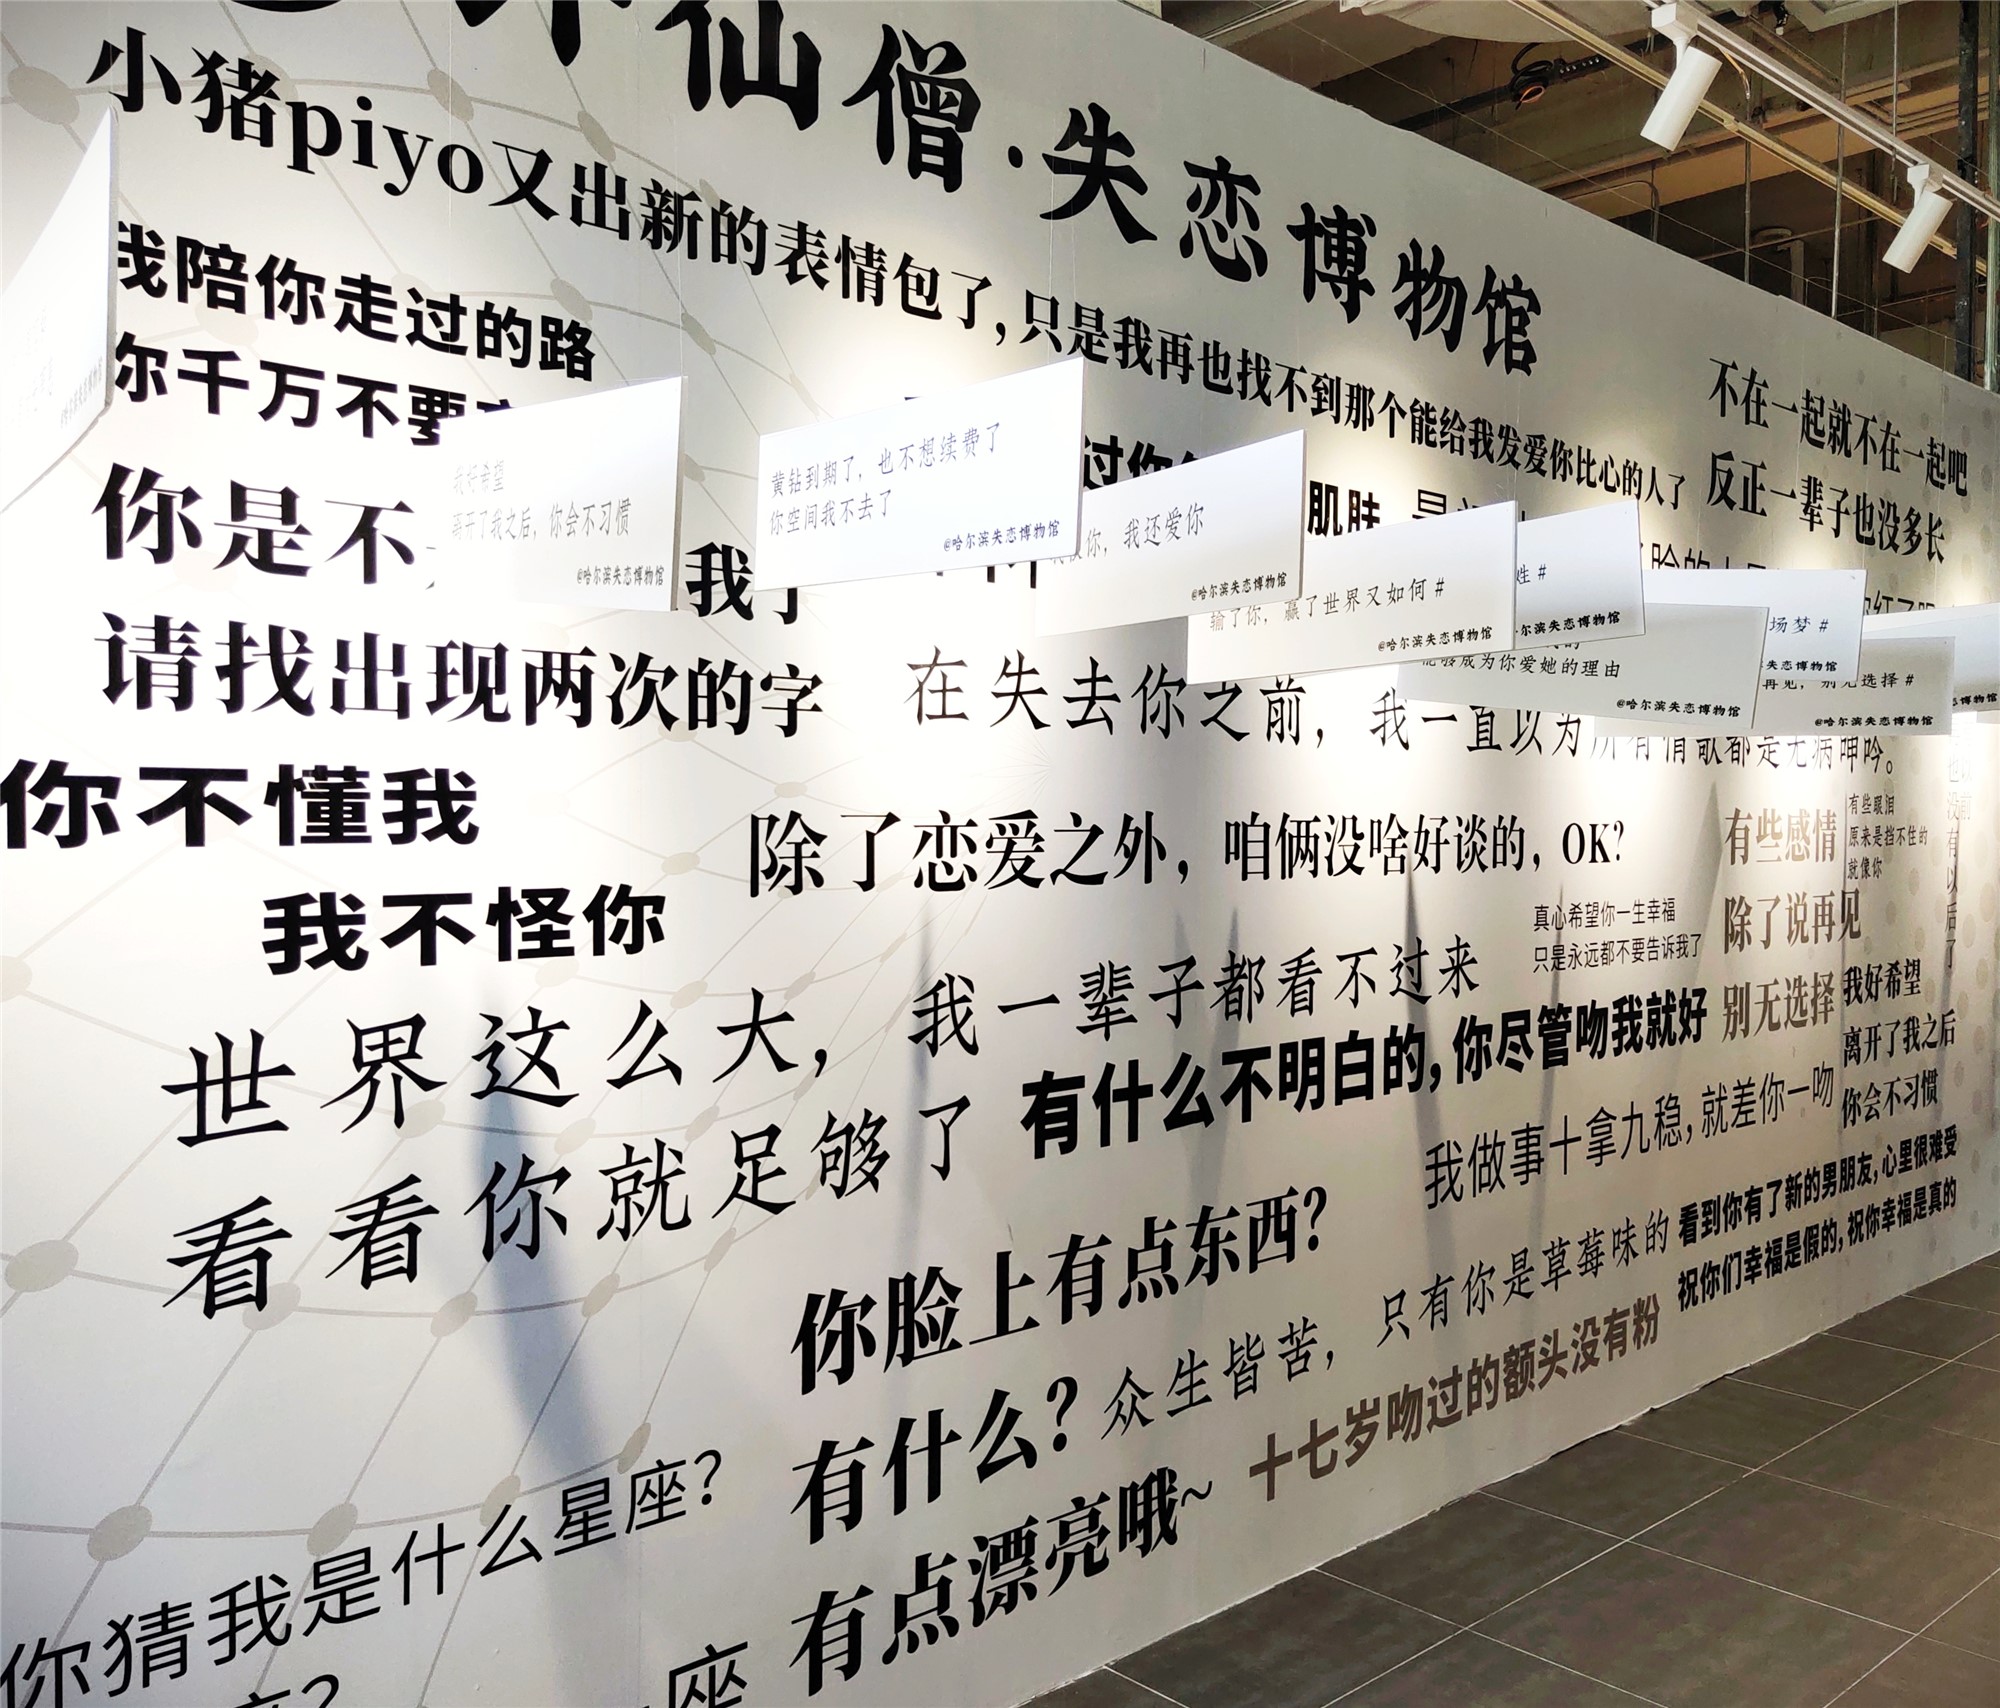 仙僧·失恋博物馆
小猪piyo又出新的表情包了，只是我再也找不到那个能给我发爱你比心的人了
我陪你走过的路
你千万不要
不在一起就不在一起吧
反正一辈子也没多长
你是不
我了
请找出现两次的字
我好希望
离开了我之后，你会不习惯
@哈尔滨失恋博物馆
黄钻到期了，也不想续费了
你空间我不去了
@哈尔滨失恋博物馆
过你
你，我还爱你
@哈尔滨失恋博物馆
肌肤
输了你，赢了世界又如何#
@哈尔滨失恋博物馆
姓#
哈尔滨失恋博物馆
能够成为你爱她的理由
@哈尔滨失恋博物馆
场梦#
失恋博物馆
再见，别无选择#
@哈尔滨失恋博物馆
恋博物馆
在失去你之前，我一直以为所有情歌都是无病呻吟。
你不懂我
我不怪你
除了恋爱之外，咱俩没啥好谈的，OK?
有些感情
除了说再见
别无选择
有些眼泪
原来是挡不住的
就像你
没有以后了
真心希望你一生幸福
只是永远都不要告诉我了
世界这么大，我一辈子都看不过来
看看你就足够了
有什么不明白的，你尽管吻我就好
我好希望
离开了我之后
你会不习惯
我做事十拿九稳，就差你一吻
你脸上有点东西?
有什么?
有点漂亮哦~
众生皆苦，只有你是草莓味的
看到你有了新的男朋友，心里很难受
祝你们幸福是假的，祝你幸福是真的
十七岁吻过的额头没有粉
你猜我是什么星座?
座?
座